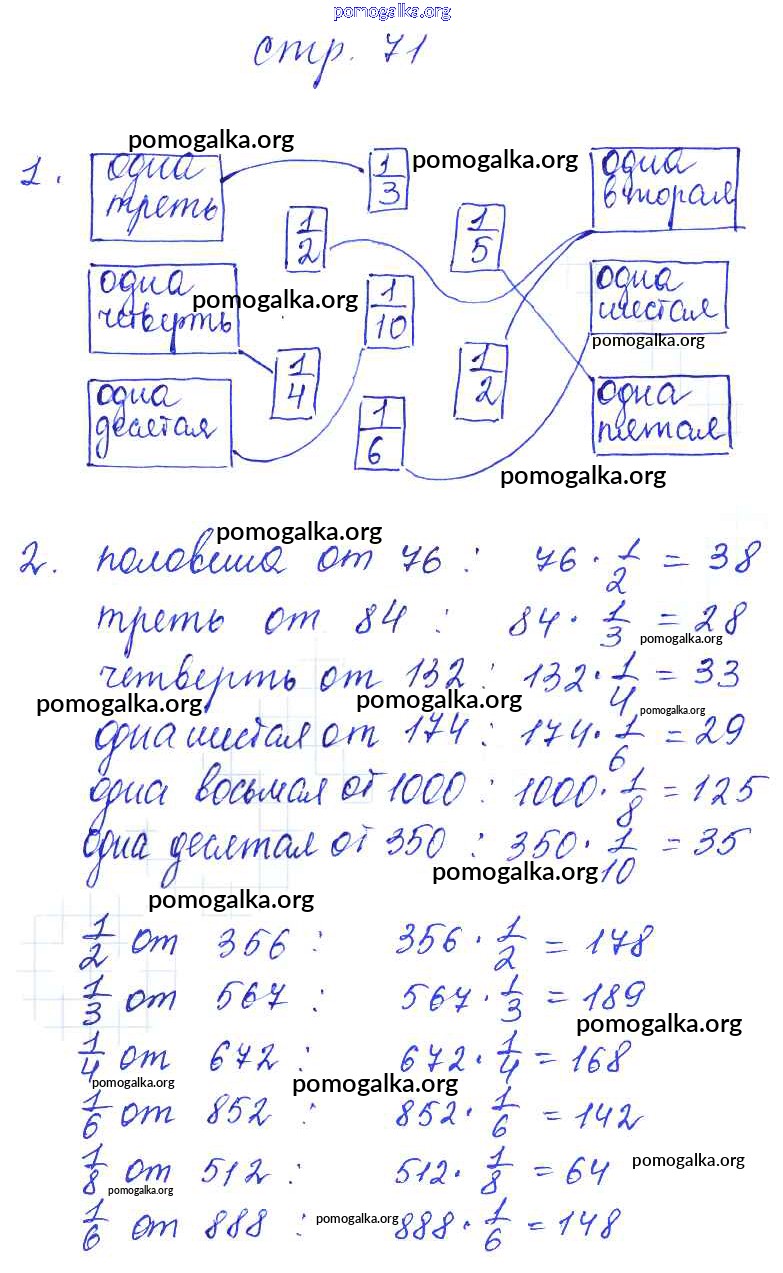 pomogalka.org
стр. 71
pomogalka.org
1. одна треть 1/3 pomogalka.org одна вторая
1/2 1/5
одна четверть pomogalka.org 1/10 одна шестая
pomogalka.org
1/4 1/2
одна десятая 1/6 одна пятая
pomogalka.org
pomogalka.org
2. половина от 76 : 76 · 1/2 = 38
треть от 84 : 84 · 1/3 = 28
pomogalka.org
четверть от 132 : 132 · 1/4 = 33
pomogalka.org pomogalka.org pomogalka.org
одна шестая от 174 : 174 · 1/6 = 29
одна восьмая от 1000 : 1000 · 1/8 = 125
одна десятая от 350 : 350 · 1/10 = 35
pomogalka.org
pomogalka.org
1/2 от 356 : 356 · 1/2 = 178
1/3 от 567 : 567 · 1/3 = 189
pomogalka.org
1/4 от 672 : 672 · 1/4 = 168
pomogalka.org pomogalka.org
1/6 от 852 : 852 · 1/6 = 142
1/8 от 512 : 512 · 1/8 = 64 pomogalka.org
pomogalka.org
1/6 от 888 : pomogalka.org 888 · 1/6 = 148